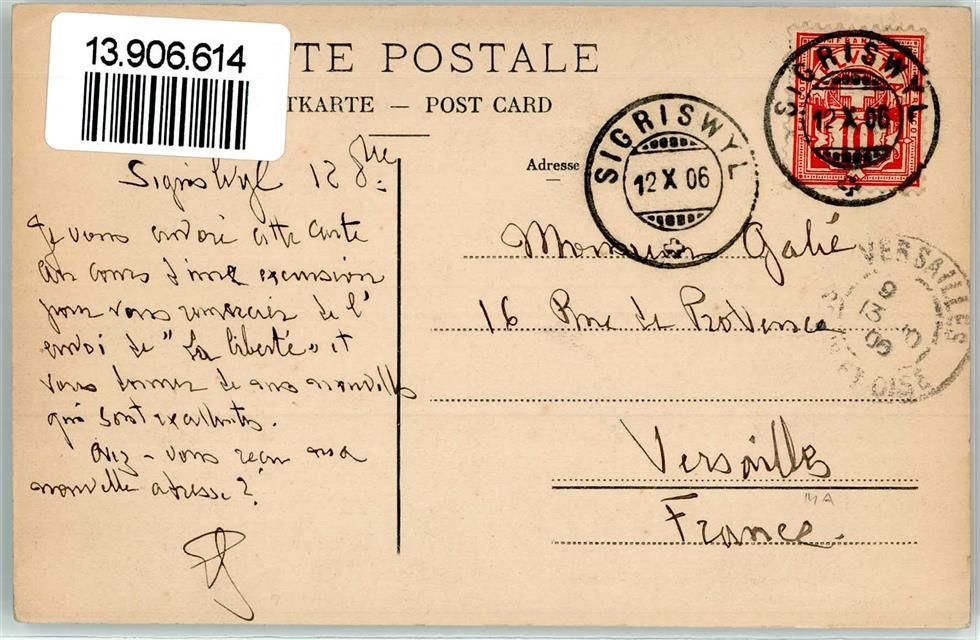 13.906.614
TE POSTALE
TKARTE — POST CARD
Sigriswyl 12 8bre
Je vous envoie cette carte
au cours d'une excursion
pour vous remercier de l'
envoi de "La liberté" et
vous donner de mes nouvelles
qui sont excellentes.
Avez-vous reçu ma
nouvelle adresse?
Adresse
Monsieur Galié
16 Rue de Provence
Versailles
France.
MA
SIGRISWYL
12 X 06
SIGRISWYL
12 X 06
FRANCO
10
VERSAILLES
9
13
06